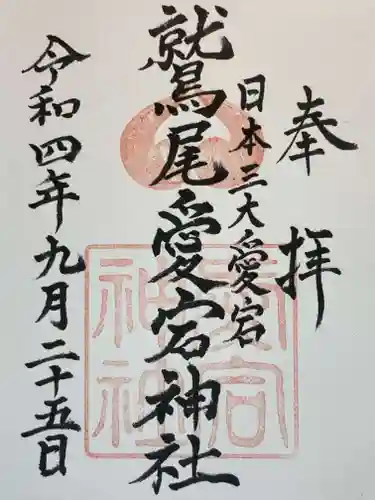 奉拝
日本三大愛宕
鷲尾愛宕神社
令和四年九月二十五日
愛宕
神社